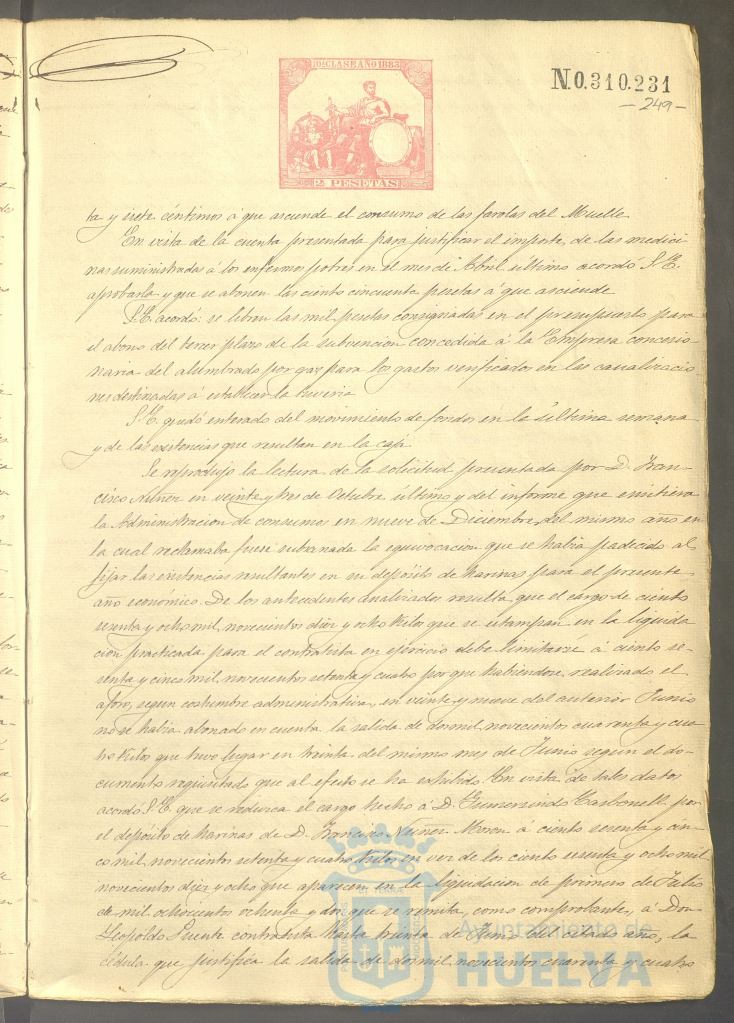 10ª CLASE AÑO 1883
2 PESETAS
N.0.310.231
-249-
ta y siete céntimos á que asciende el consumo de las farolas del Muelle
En vista de la cuenta presentada para justificar el importe de las medici
nas suministradas á los enfermos pobres en el mes de Abril último acordó S.E.
aprobarla y que se abonen las ciento cincuenta pesetas á que asciende
S.E. acordó: se libren las mil pesetas consignadas en el presupuesto para
el abono del tercer plazo de la subvencion concedida á la Empresa concesio
naria del alumbrado por gas para los gastos verificados en las canalizacio
nes destinadas á establecer la tuveria
S.E. quedó enterado del movimiento de fondos en la última semana
y de las existencias que resultan en la caja
Se reprodujo la lectura de la solicitud presentada por D. Fran
cisco Nuñez en veinte y tres de Octubre último y del informe que emitiera
la Administracion de consumos en nueve de Diciembre del mismo año en
la cual reclamaba fuese subsanada la equivocacion que se habia padecido al
fijar las existencias resultantes en su depósito de harinas para el presente
año económico. De los antecedentes analizados resulta que el cargo de ciento
sesenta y ocho mil novecientos diez y ocho kilos que se estampan en la liquida
cion practicada para el contratista en ejercicio debe limitarse á ciento se-
senta y cinco mil novecientos setenta y cuatro por que habiendose realizado el
aforo, segun costumbre administrativa, en veinte y nueve del anterior Junio
no se habia abonado en cuenta la salida de dos mil novecientos cuarenta y cua
tro kilos que tuvo lugar en treinta del mismo mes de Junio segun el do-
cumento requisitado que al efecto se ha exhibido. En vista de tales datos
acordó S.E. que se reduzca el cargo hecho á D. Gumersindo Carbonell por
el depósito de harinas de D. Francisco Nuñez Moron á ciento sesenta y cin-
co mil novecientos setenta y cuatro kilos en vez de los ciento sesenta y ocho mil
novecientos diez y ocho que aparecen en la liquidacion de primero de Julio
de mil ochocientos ochenta y dos que se remita, como comprobante, á Don
Leopoldo Puente contratista hasta treinta de Junio del citado año, la
cédula que justifica la salida de dos mil novecientos cuarenta y cuatro
Ayuntamiento de
HUELVA